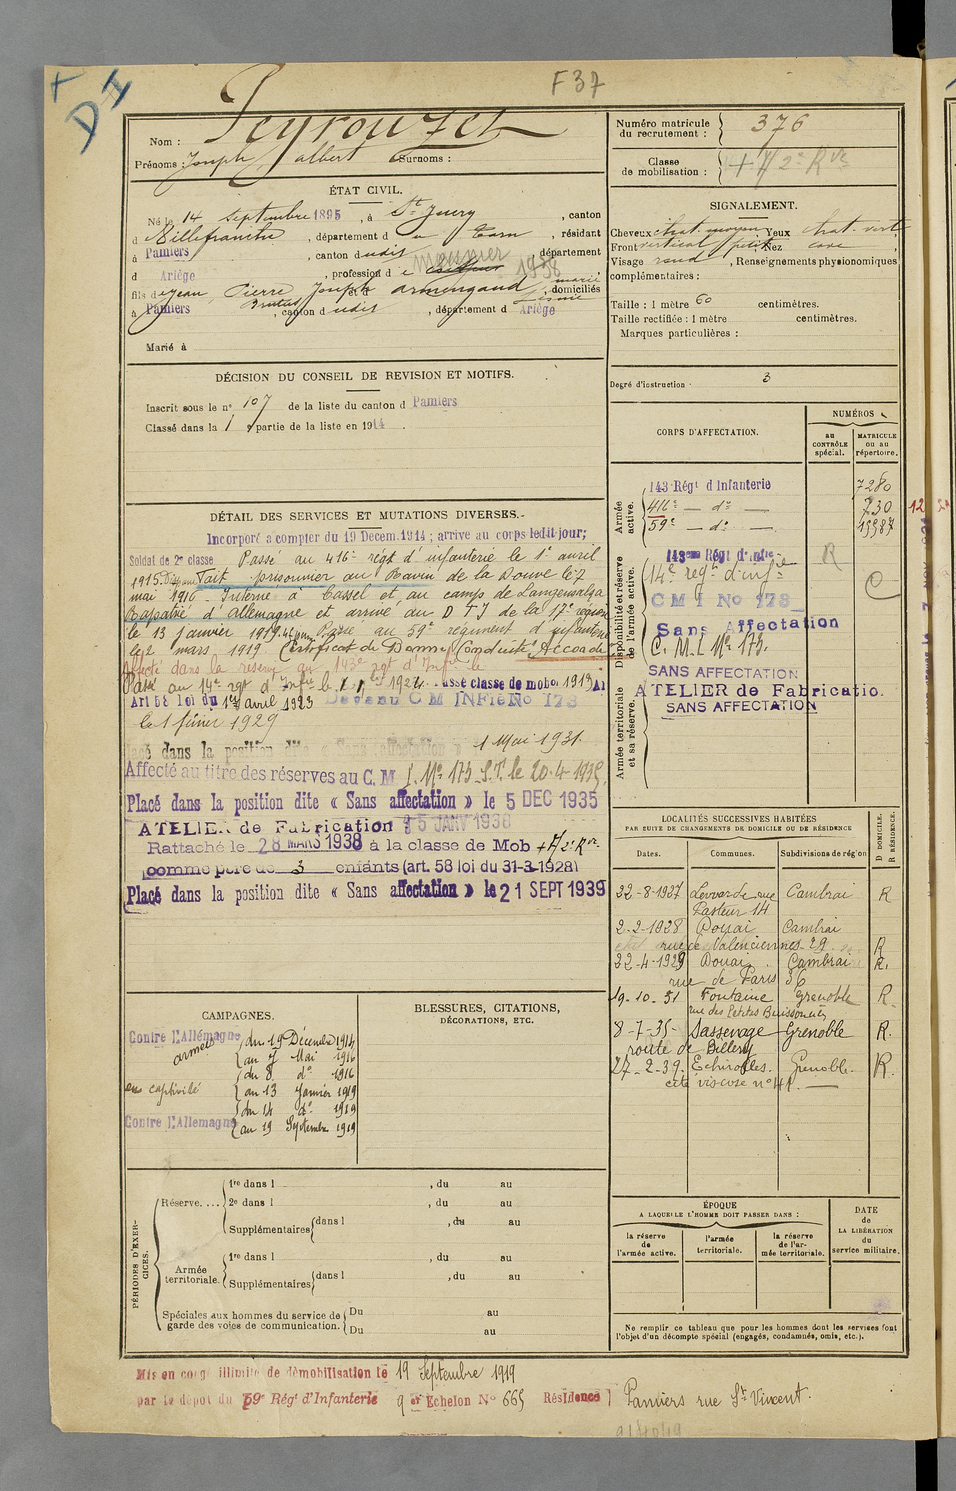 F 37
D I
Nom : Peyrouzet
Prénoms : Joseph Albert Surnoms :
Numéro matricule du recrutement : 376
Classe de mobilisation : + A 2e Rve
ÉTAT CIVIL.
Né le 14 Septembre 1895, à St Juéry, canton
d Villefranche, département d u Tarn, résidant
à Pamiers, canton d udit, département
d Ariège, profession d e
1938
fils de Jean, Pierre Joseph et d Armengaud, domiciliés
à Pamiers, canton d udit, département d Ariège
Marié à
SIGNALEMENT.
Cheveux chat. moyen Yeux chat. vert
Front vertical petit Nez cave,
Visage rond, Renseignements physionomiques
complémentaires :
Taille : 1 mètre 60 centimètres.
Taille rectifiée : 1 mètre centimètres.
Marques particulières :
Degré d'instruction · 3
DÉCISION DU CONSEIL DE REVISION ET MOTIFS.
Inscrit sous le no 107 de la liste du canton d Pamiers
Classé dans la 1 partie de la liste en 1914.
CORPS D'AFFECTATION.
NUMÉROS
au CONTRÔLE spécial.
MATRICULE ou au répertoire.
Armée active.
143e Régt d'Infanterie 7280
416e — do — 730
59e — do — 19587
Disponibilité et réserve de l'armée active.
143eme Régt d'Infie R
14e regt d'infie C
C M I No 173
Sans Affectation
C. M. I. No 173.
SANS AFFECTATION
ATELIER de Fabricatio.
SANS AFFECTATION
Armée territoriale et sa réserve.
DÉTAIL DES SERVICES ET MUTATIONS DIVERSES.-
Incorporé a compter du 19 Decem. 1914 ; arrive au corps ledit jour;
Soldat de 2e classe Passé au 416e régt d'infanterie le 1er avril
1915. Fait prisonnier au Ravin de la Douve le 7
mai 1916 Interné à Cassel et au camps de Langensalza
Rapatrié d'Allemagne et arrivé au D T I de la 17e région
le 13 Janvier 1919. Passé au 59e régiment d'infanterie
le 2 mars 1919. Certificat de Bonne Conduite "Accordé"
Affecté dans la réserve au 143e rgt d'Infie le
Passé au 14e rgt d'Infie le 1924. Passé classe de mob. 1913 A
Art 58 loi du 1er avril 1923 Devenu C M INFie No 173
le 1 février 1929
Placé dans la position dite « Sans affectation » 1 Mai 1931.
Affecté au titre des réserves au C. M I. No 173 S.T. le 20.4.1935.
Placé dans la position dite « Sans affectation » le 5 DEC 1935
ATELIER de Fabrication 5 JANV 1938
Rattaché le 28 MARS 1938 à la classe de Mob + A 2e Rve
comme père de 3 enfants (art. 58 loi du 31-3-1928)
Placé dans la position dite « Sans affectation » le 21 SEPT 1939
LOCALITÉS SUCCESSIVES HABITÉES
PAR SUITE DE CHANGEMENTS DE DOMICILE OU DE RÉSIDENCE
Dates. Communes. Subdivisions de région D DOMICILE. R RÉSIDENCE.
22-8-1927 Lewarde rue Cambrai R
Pasteur 14
2-2-1928 Douai Cambrai
rue de Valenciennes 29 R
22-4-1929 Douai Cambrai R.
rue de Paris 36
19-10-31 Fontaine Grenoble R.
rue des Petites Buissonnées
8-7-35- Sassenage Grenoble R.
route de
27-2-39. Echirolles. Grenoble. R.
cité viscose no 41.
CAMPAGNES.
Contre l'Allemagne du 19 Décembre 1914
armée au 7 Mai 1916
en captivité du 8 do 1916
au 13 Janvier 1919
Contre l'Allemagne du 14 do 1919
au 19 Septembre 1919
BLESSURES, CITATIONS,
DÉCORATIONS, ETC.
PÉRIODES D'EXERCICES.
Réserve.... 1re dans l , du au
2e dans l , du au
Supplémentaires dans l , du au
Armée territoriale. 1re dans l , du au
Supplémentaires dans l , du au
Spéciales aux hommes du service de garde des voies de communication. Du au
Du au
ÉPOQUE
A LAQUELLE L'HOMME DOIT PASSER DANS :
la réserve de l'armée active.
l'armée territoriale.
la réserve de l'armée territoriale.
DATE de LA LIBÉRATION du service militaire.
Ne remplir ce tableau que pour les hommes dont les services font
l'objet d'un décompte spécial (engagés, condamnés, omis, etc.).
Mis en congé illimité de démobilisation le 19 Septembre 1919
par le dépot du 59e Régt d'Infanterie 9 er Echelon No 665 Résidence Pamiers rue St Vincent.